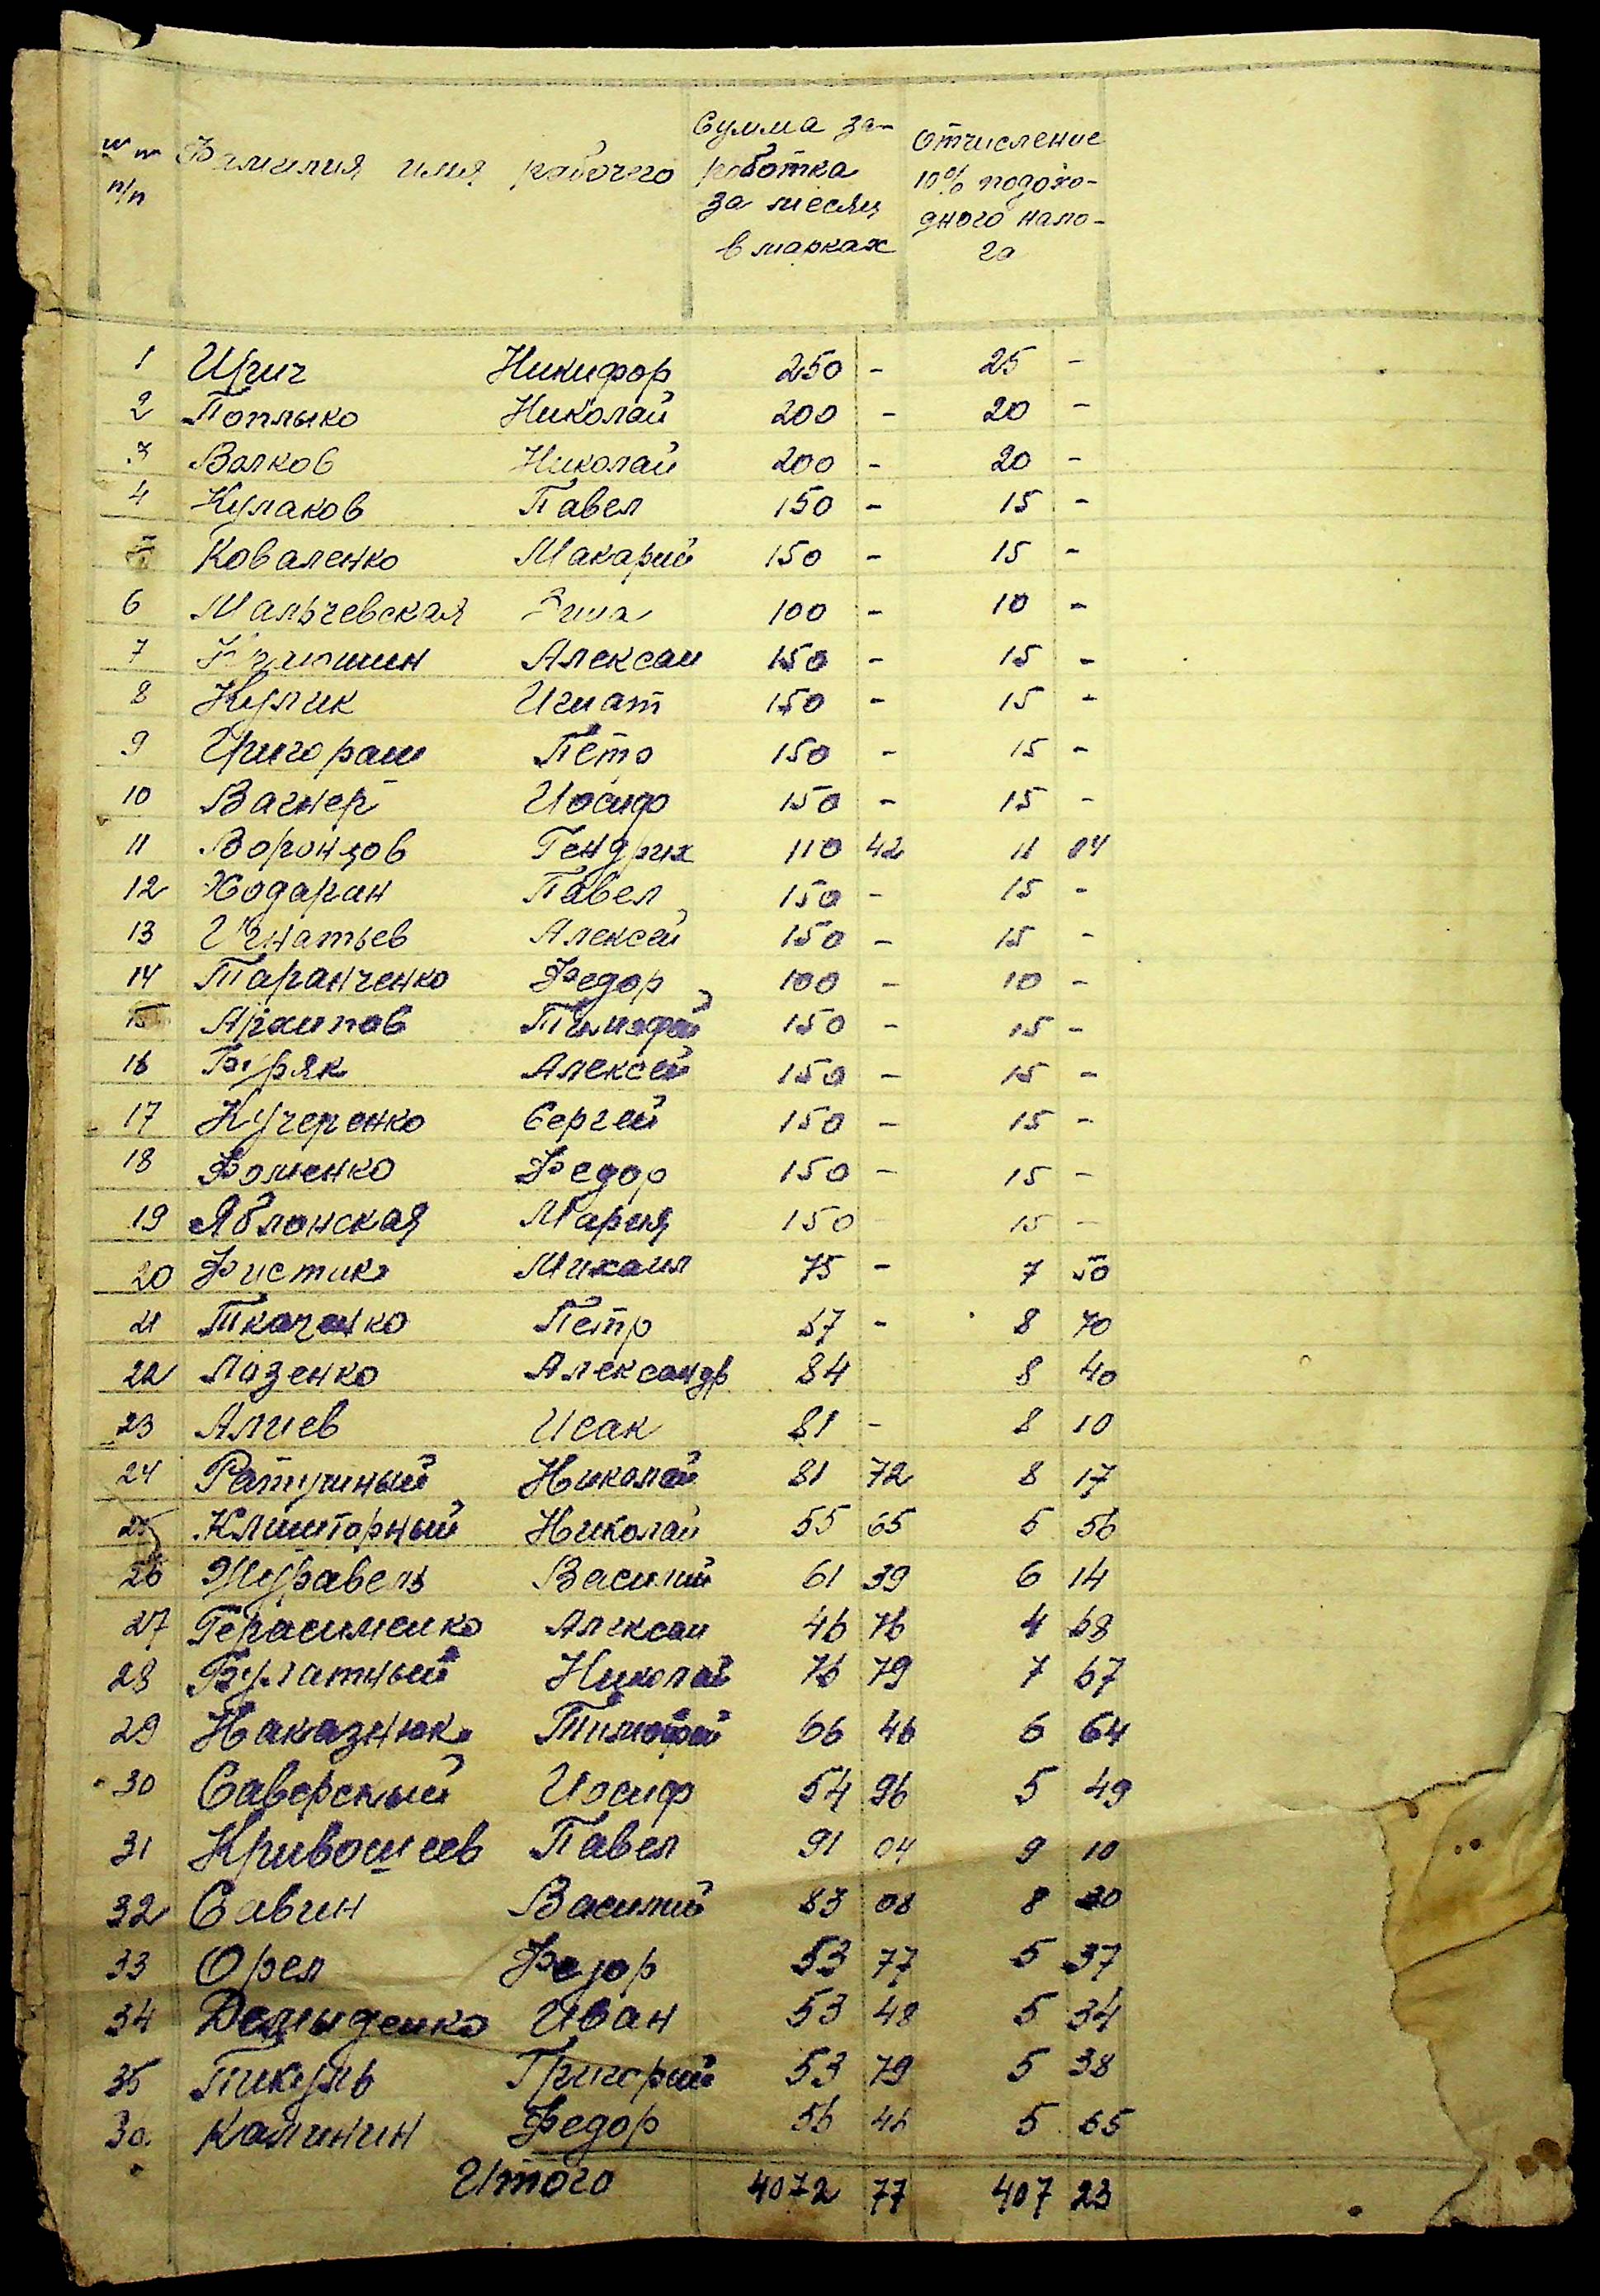 №№ Фамилия имя рабочего Сумма за- Отчисление
п/п роботка 10% подохо-
за месяц дного нало-
в марках га
1 Црич Никифор 250 - 25 -
2 Поплыко Николай 200 - 20 -
3 Валков Николай 200 - 20 -
4 Кулаков Павел 150 - 15 -
5 Коваленко Макарий 150 - 15 -
6 Мальчевская 100 - 10 -
7 Алексей 150 - 15 -
8 Кулик Игнат 150 - 15 -
9 Григораш Пётр 150 - 15 -
10 Вагнер Иосиф 150 - 15 -
11 Воронцов Гендрих 110 42 11 04
12 Ходаран Павел 150 - 15 -
13 Игнатьев Алексей 150 - 15 -
14 Таранченко Федор 100 - 10 -
15 Архипов Тимофей 150 - 15 -
16 Буряк Алексей 150 - 15 -
17 Кучеренко Сергей 150 - 15 -
18 Фоменко Федор 150 - 15 -
19 Яблонская Мария 150 - 15 -
20 Фистик Михаил 75 - 7 50
21 Ткаченко Петр 87 - 8 70
22 Лазенко Александр 84 8 40
23 Алиев Исак 81 - 8 10
24 Ратушный Николай 81 72 8 17
25 Клишторный Николай 55 65 5 56
26 Журавель Василий 61 39 6 14
27 Герасименко Алексей 46 76 4 68
28 Булатный Николай 76 79 7 67
29 Наказнюк Тимофей 66 46 6 64
30 Саверский Иосиф 54 96 5 49
31 Кривошеев Павел 91 04 9 10
32 Савин Василий 83 08 8 30
33 Орел Федор 53 77 5 37
34 Демиденко Иван 53 48 5 34
35 Пикуль Григорий 53 79 5 38
36 Калинин Федор 56 46 5 65
Итого 4072 77 407 23